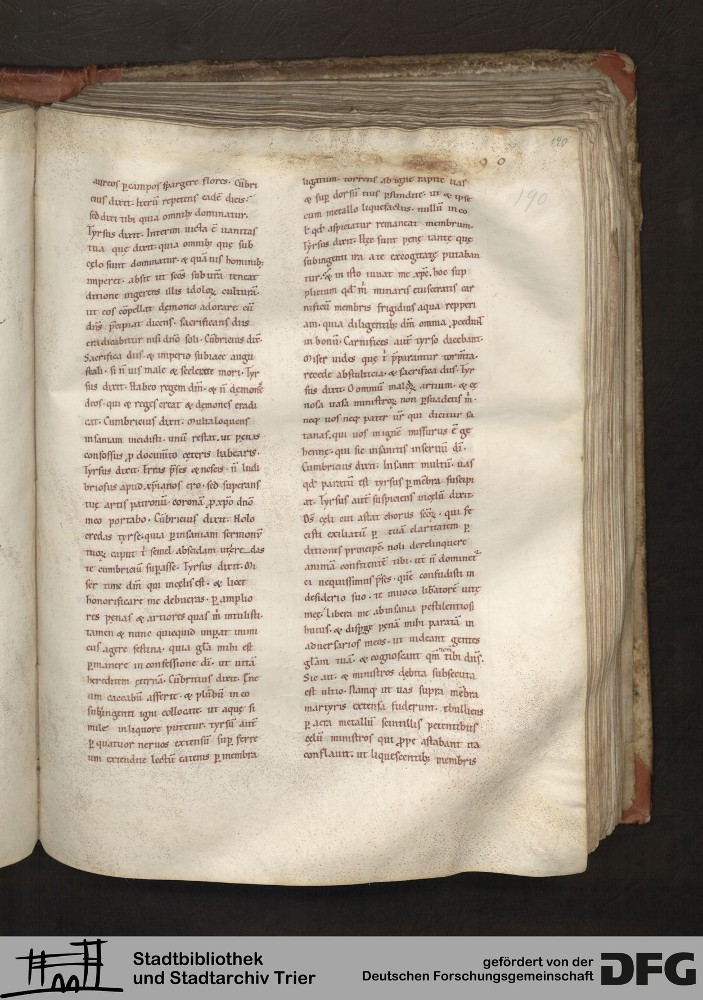 190
190
aureos p campos spargere flores. Cūbri
cius dixit. Iterū repetens eadē dicis.
sed dixi tibi quia omnibꝫ dominatur.
Tyrsus dixit. Interim victa ē vanitas
tua que dixit. quia omnibꝫ que sub
celo sunt dominatur. & quāuis hominibꝫ
imperet. absit ut scōs sub una teneat
ditione ingerens illis idolorꝫ culturā.
ut eos cōpellat demones adorare cū
dn̄s p̄cipiat dicens. sacrificans diis
eradicabitur nisi dn̄o soli. Cūbricius dix̄.
Sacrifica diis. & imperio subiace augu
stali. si n̄ vis male & sceleste mori. Tyr
sus dixit. Habeo regem dm̄. & n̄ demonē
deos. qui & reges creat & demones eradi
cat. Cumbricius dixit. Multaloquens
insaniam incidisti. unū restat. ut penas
confossus p documto ceteris iubearis.
Tyrsus dixit. Erras p̄ses & nescis. n̄ ludi
briosus apud xp̄ianos ero. sed superans
tue artis patronū. coronā p xp̄o dn̄o
meo portabo. Cūbricius dixit. Nolo
credas tyrse. quia p insaniam sermonū
tuorꝫ caput t̄ semel abscidam
te cumbriciū supasse. Tyrsus dixit. Mi
ser time dm̄ qui in celis est. & licet
honorificare me debueras. p amplio
res penas & artiores quas m̄ intulisti.
tamen & nunc quicquid impat inimi
cus agere festina. quia gl̄a mihi est
pmanere in confessione dī. ut uitā
hereditem eternā. Cūbricius dixit. Ene
um caccabū afferte. & plūbū in eo
subingenti igni collocate. ut aque si
mile in liquore putetur. tyrsū autē
p quatuor nervos extensū sup ferre
um extendite lectū catenis p membra
ligatum. torrens ab igne rapite vas
& sup dorsū eius pfundite. ut & ipse
cum metallo liquefactus. nullū in eo
aspiciatur remaneat membrum.
Tyrsus dixit. Hęc sunt pene tante que
subingenti ira a te excogitate putaban
tur. & in isto iuvat me xp̄c. hoc sup
plicium qd̄ m̄ minaris eiusceratis car
nificū membris frigidius aqua repperi
am. quia diligentibꝫ dm̄ omnia
in bonū. Carnifices autē tyrso dicebant.
Miser vides que t̄ p̄parantur torm̄ta.
recede abstulticia. & sacrifica diis. Tyr
sus dixit. O omniū malorꝫ artium. & ce
nosa vasa ministrorꝫ non psuadetis m̄.
neqꝫ vos neqꝫ pater vr̄ qui dicitur sa
tanas. qui vos in ignē missurus ē ge
henne. qui sic insanitis in servū dī.
Cumbricius dixit. Insanit multū. vas
qd̄ paratū est tyrsus p mēbra suscipi
at. Tyrsus autē suspiciens in celū dixit.
Dn̄s celi cui astat chorus scōrꝫ. qui fe
cisti exiliatū p tuā claritatem p
ditionis principē. noli derelinquere
animā confitentē tibi. ut n̄ dominet͛
ei nequissimus p̄ses. quē confudisti in
desiderio suo. te invoco liberatorē vite
meę. libera me ab insania pestilentiosi
huius. & disp̄ge penā mihi paratā in
adversarios meos. ut videant gentes
gl̄am tuā. & cognoscant qm̄ nomen tibi dn̄s.
Sic ait. & ministros debita subsecuta
est ultio. Namqꝫ ut vas supra mēbra
martyris extensa fuderunt. ebulliens
p acta metallū scintillis petentibus
celū ministros qui ꝓpe astabant ita
conflavit. ut liquescentibꝫ membris
Stadtbibliothek
und Stadtarchiv Trier
gefördert von der
Deutschen Forschungsgemeinschaft
DFG